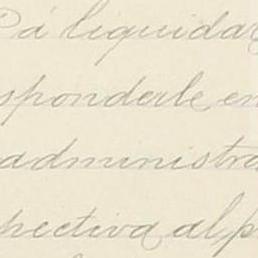 á liquidar
sponderle en
administra
pectiva al p